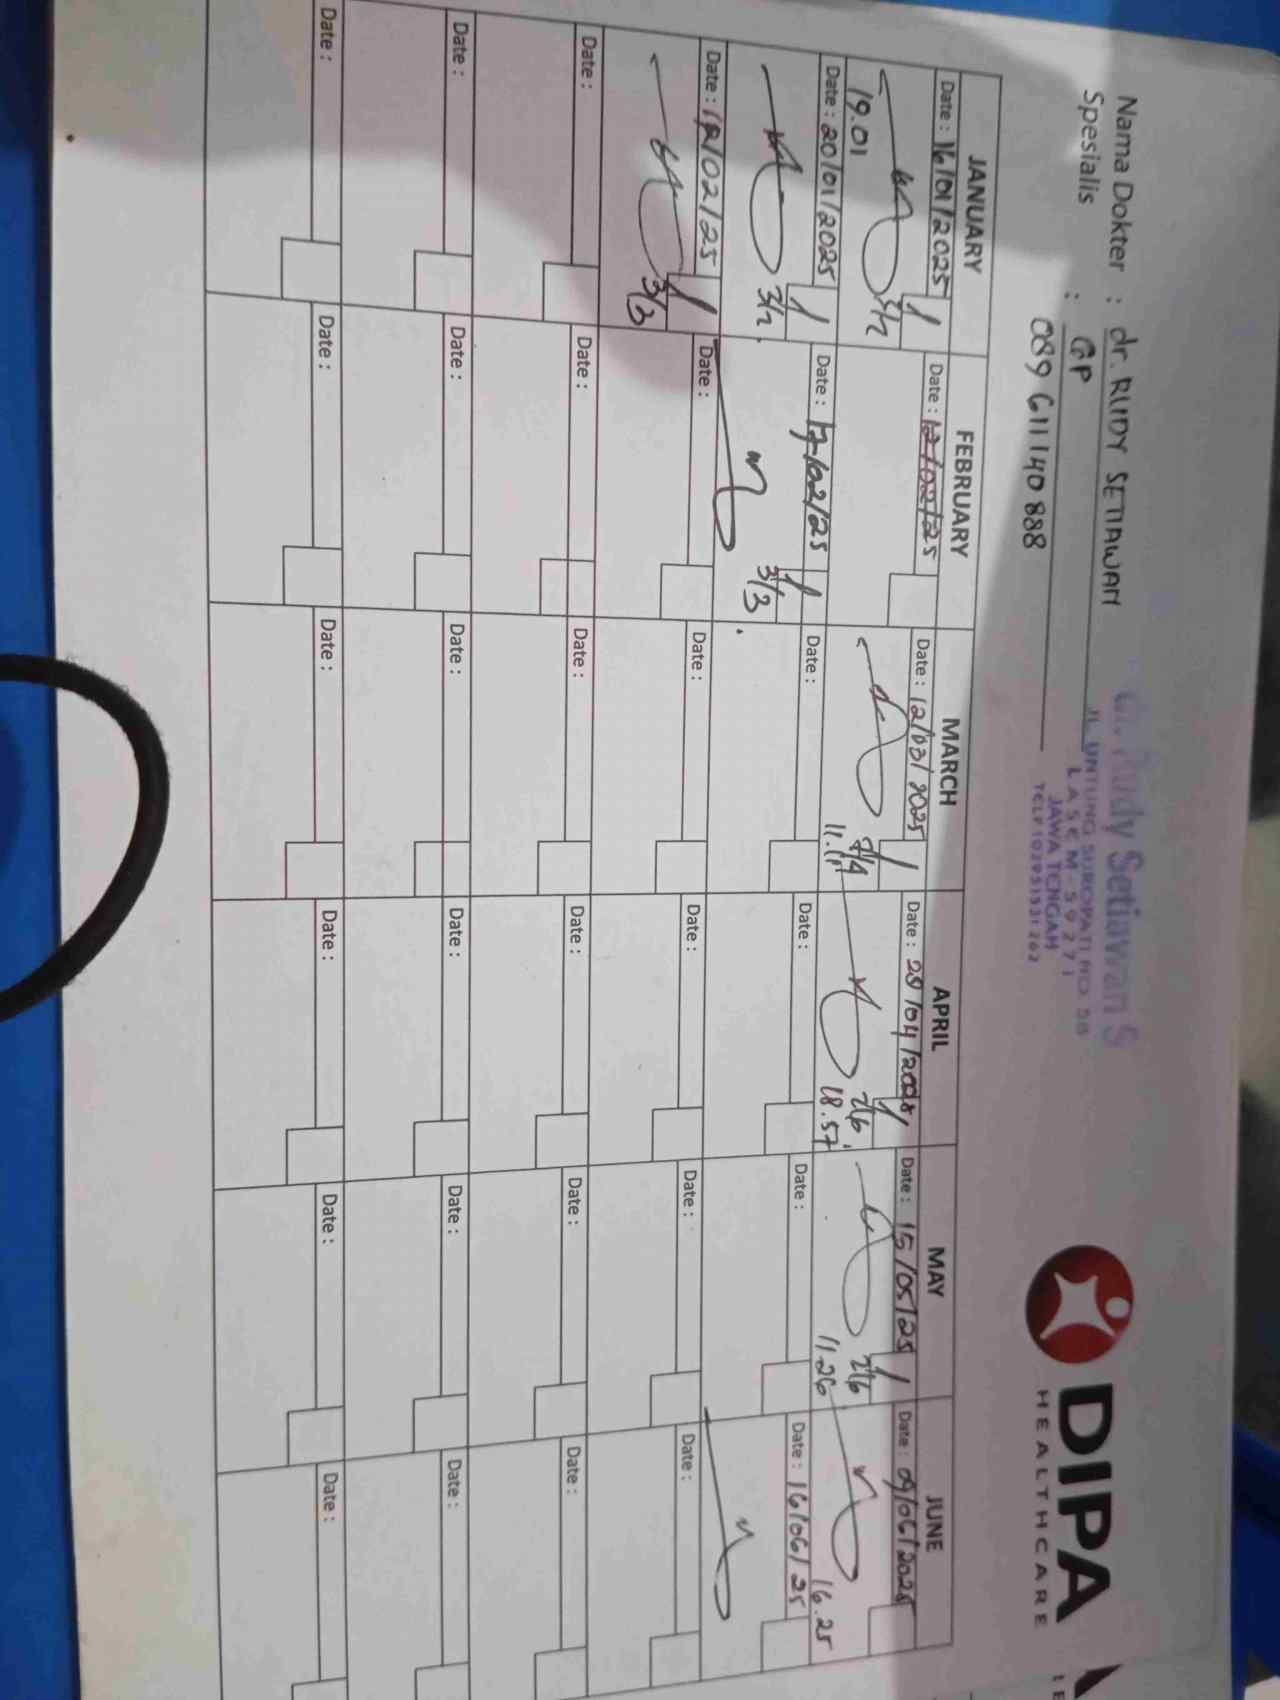 Nama Dokter : dr. RUDY SETIAWAN
Spesialis : GP
089 611140 888
dr. Rudy Setiawan S
JL. UNTUNG SUROPATI NO. 58
LASEM - 59271
JAWA TENGAH
DIPA
HEALTHCARE
JANUARY FEBRUARY MARCH APRIL MAY JUNE
Date : 16/01/2025 Date : 12/02/25 Date : 12/03/2025 Date : 28/04/2025 Date : 15/05/25 Date : 09/06/2025
19.01 11.11 18.57 11.26 16.25
Date : 20/01/2025 Date : 17/02/25 Date : Date : Date : Date : 16/06/25
3/2 3/3
Date : 12/02/25 Date : Date : Date : Date : Date :
3/3
Date : Date : Date : Date : Date : Date :
Date : Date : Date : Date : Date : Date :
Date : Date : Date : Date : Date : Date :